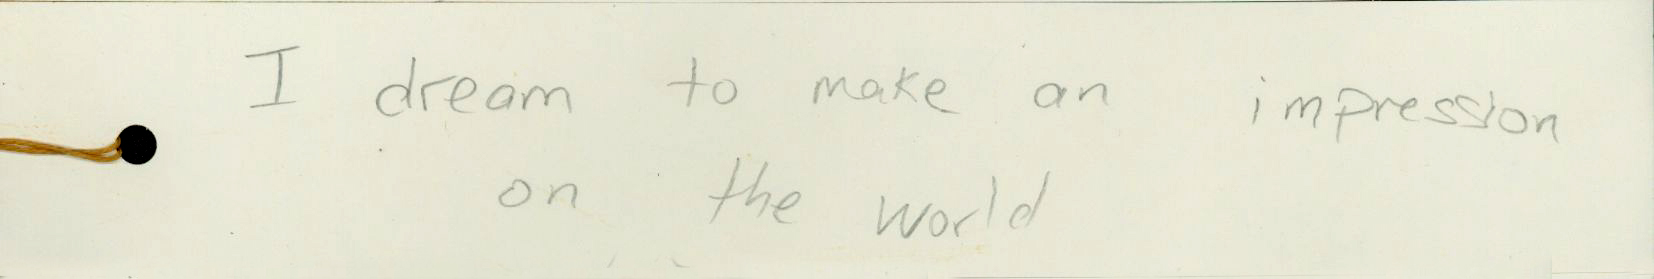 I dream to make an impression
on the world